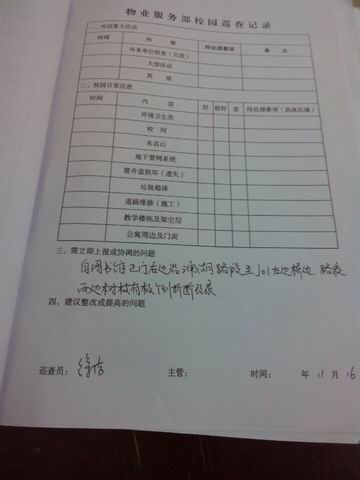 物业服务部校园巡查记录
一、校园重大活动
时间 内 容 待处理事项 备 注
外来单位检查（交流）
大型活动
其 他
二、校园日常巡查
时间 内 容 好 较好 差 待处理事项（具体区域）
环境卫生类
校 河
未名山
地下管网系统
窨井盖损坏（遗失）
垃圾箱体
道路维修（施工）
教学楼栋及架空层
公寓周边及门面
三、需立即上报或协调的问题
自图书馆 门右边沿 湖路段至J01左边桥边 路段
西边树枝有 个 断
四、建议整改或提高的问题
巡查员：徐 主管： 时间： 年 11 月 16